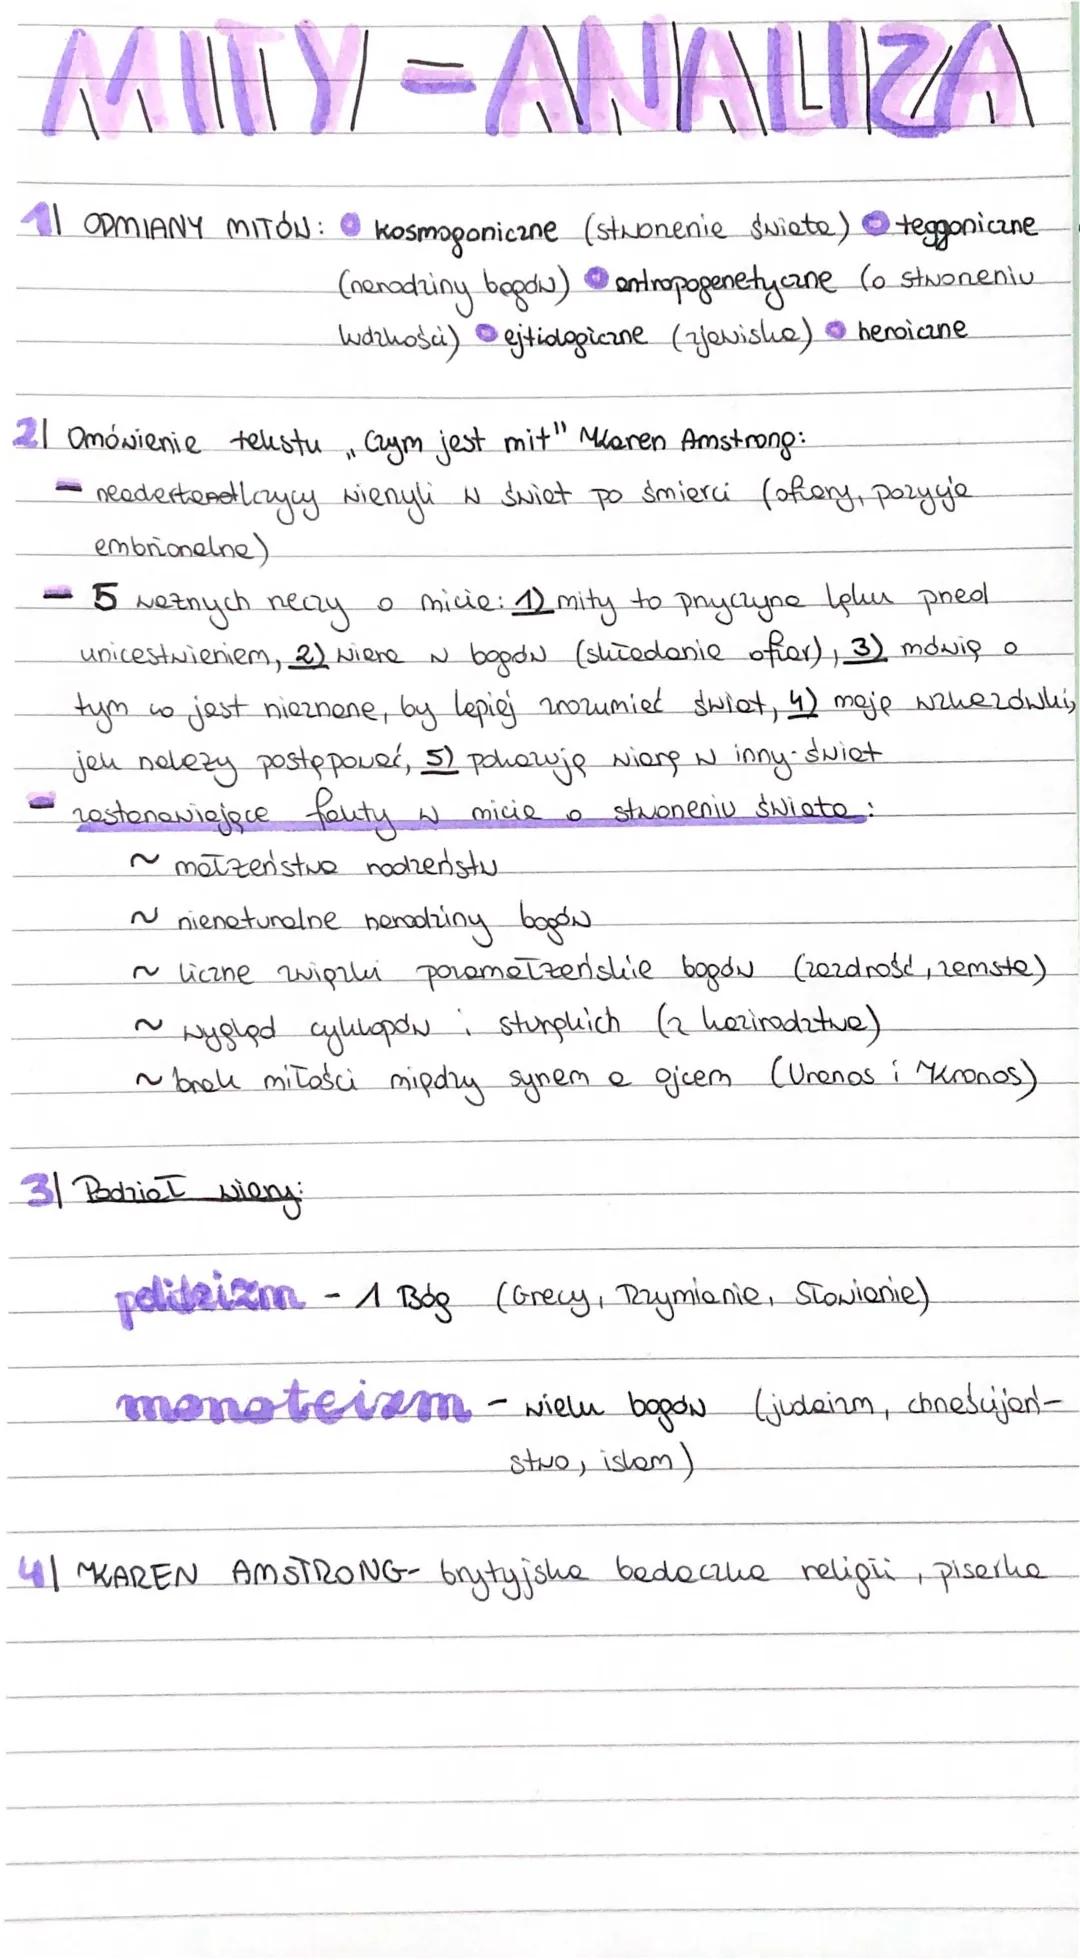 MITY = ANALIZA
1| ODMIANY MITÓW: kosmogoniczne (stworzenie świata) teogoniczne
(narodziny bogów) antropogenetyczne (o stworzeniu
ludzkości) ejtiologiczne (zjawiska) heroiczne
2| Omówienie tekstu „Czym jest mit" Karen Amstrong:
- neadertandlczycy wierzyli w świat po śmierci (ofiary, pozycja
embrionalna)
- 5 ważnych rzeczy o micie: 1) mity to przyczyna lęku przed
unicestwieniem, 2) wiara w bogów (składanie ofiar), 3) mówią o
tym co jest nieznane, by lepiej zrozumieć świat, 4) mają wskazówki,
jak należy postępować, 5) pokazują wiarę w inny świat
- zastanawiające fakty w micie o stworzeniu świata:
~ małżeństwa rodzeństw
~ nienaturalne narodziny bogów
~ liczne związki pozamałżeńskie bogów (zazdrość, zemsta)
~ wygląd cyklopów i sturękich (z kazirodztwa)
~ brak miłości między synem a ojcem (Uranos i Kronos)
3| Podział wiary:
politeizm - 1 Bóg (Grecy, Rzymianie, Słowianie)
monoteizm - wielu bogów (judaizm, chrześcijań-
stwo, islam)
4| KAREN AMSTRONG - brytyjska badaczka religii, pisarka